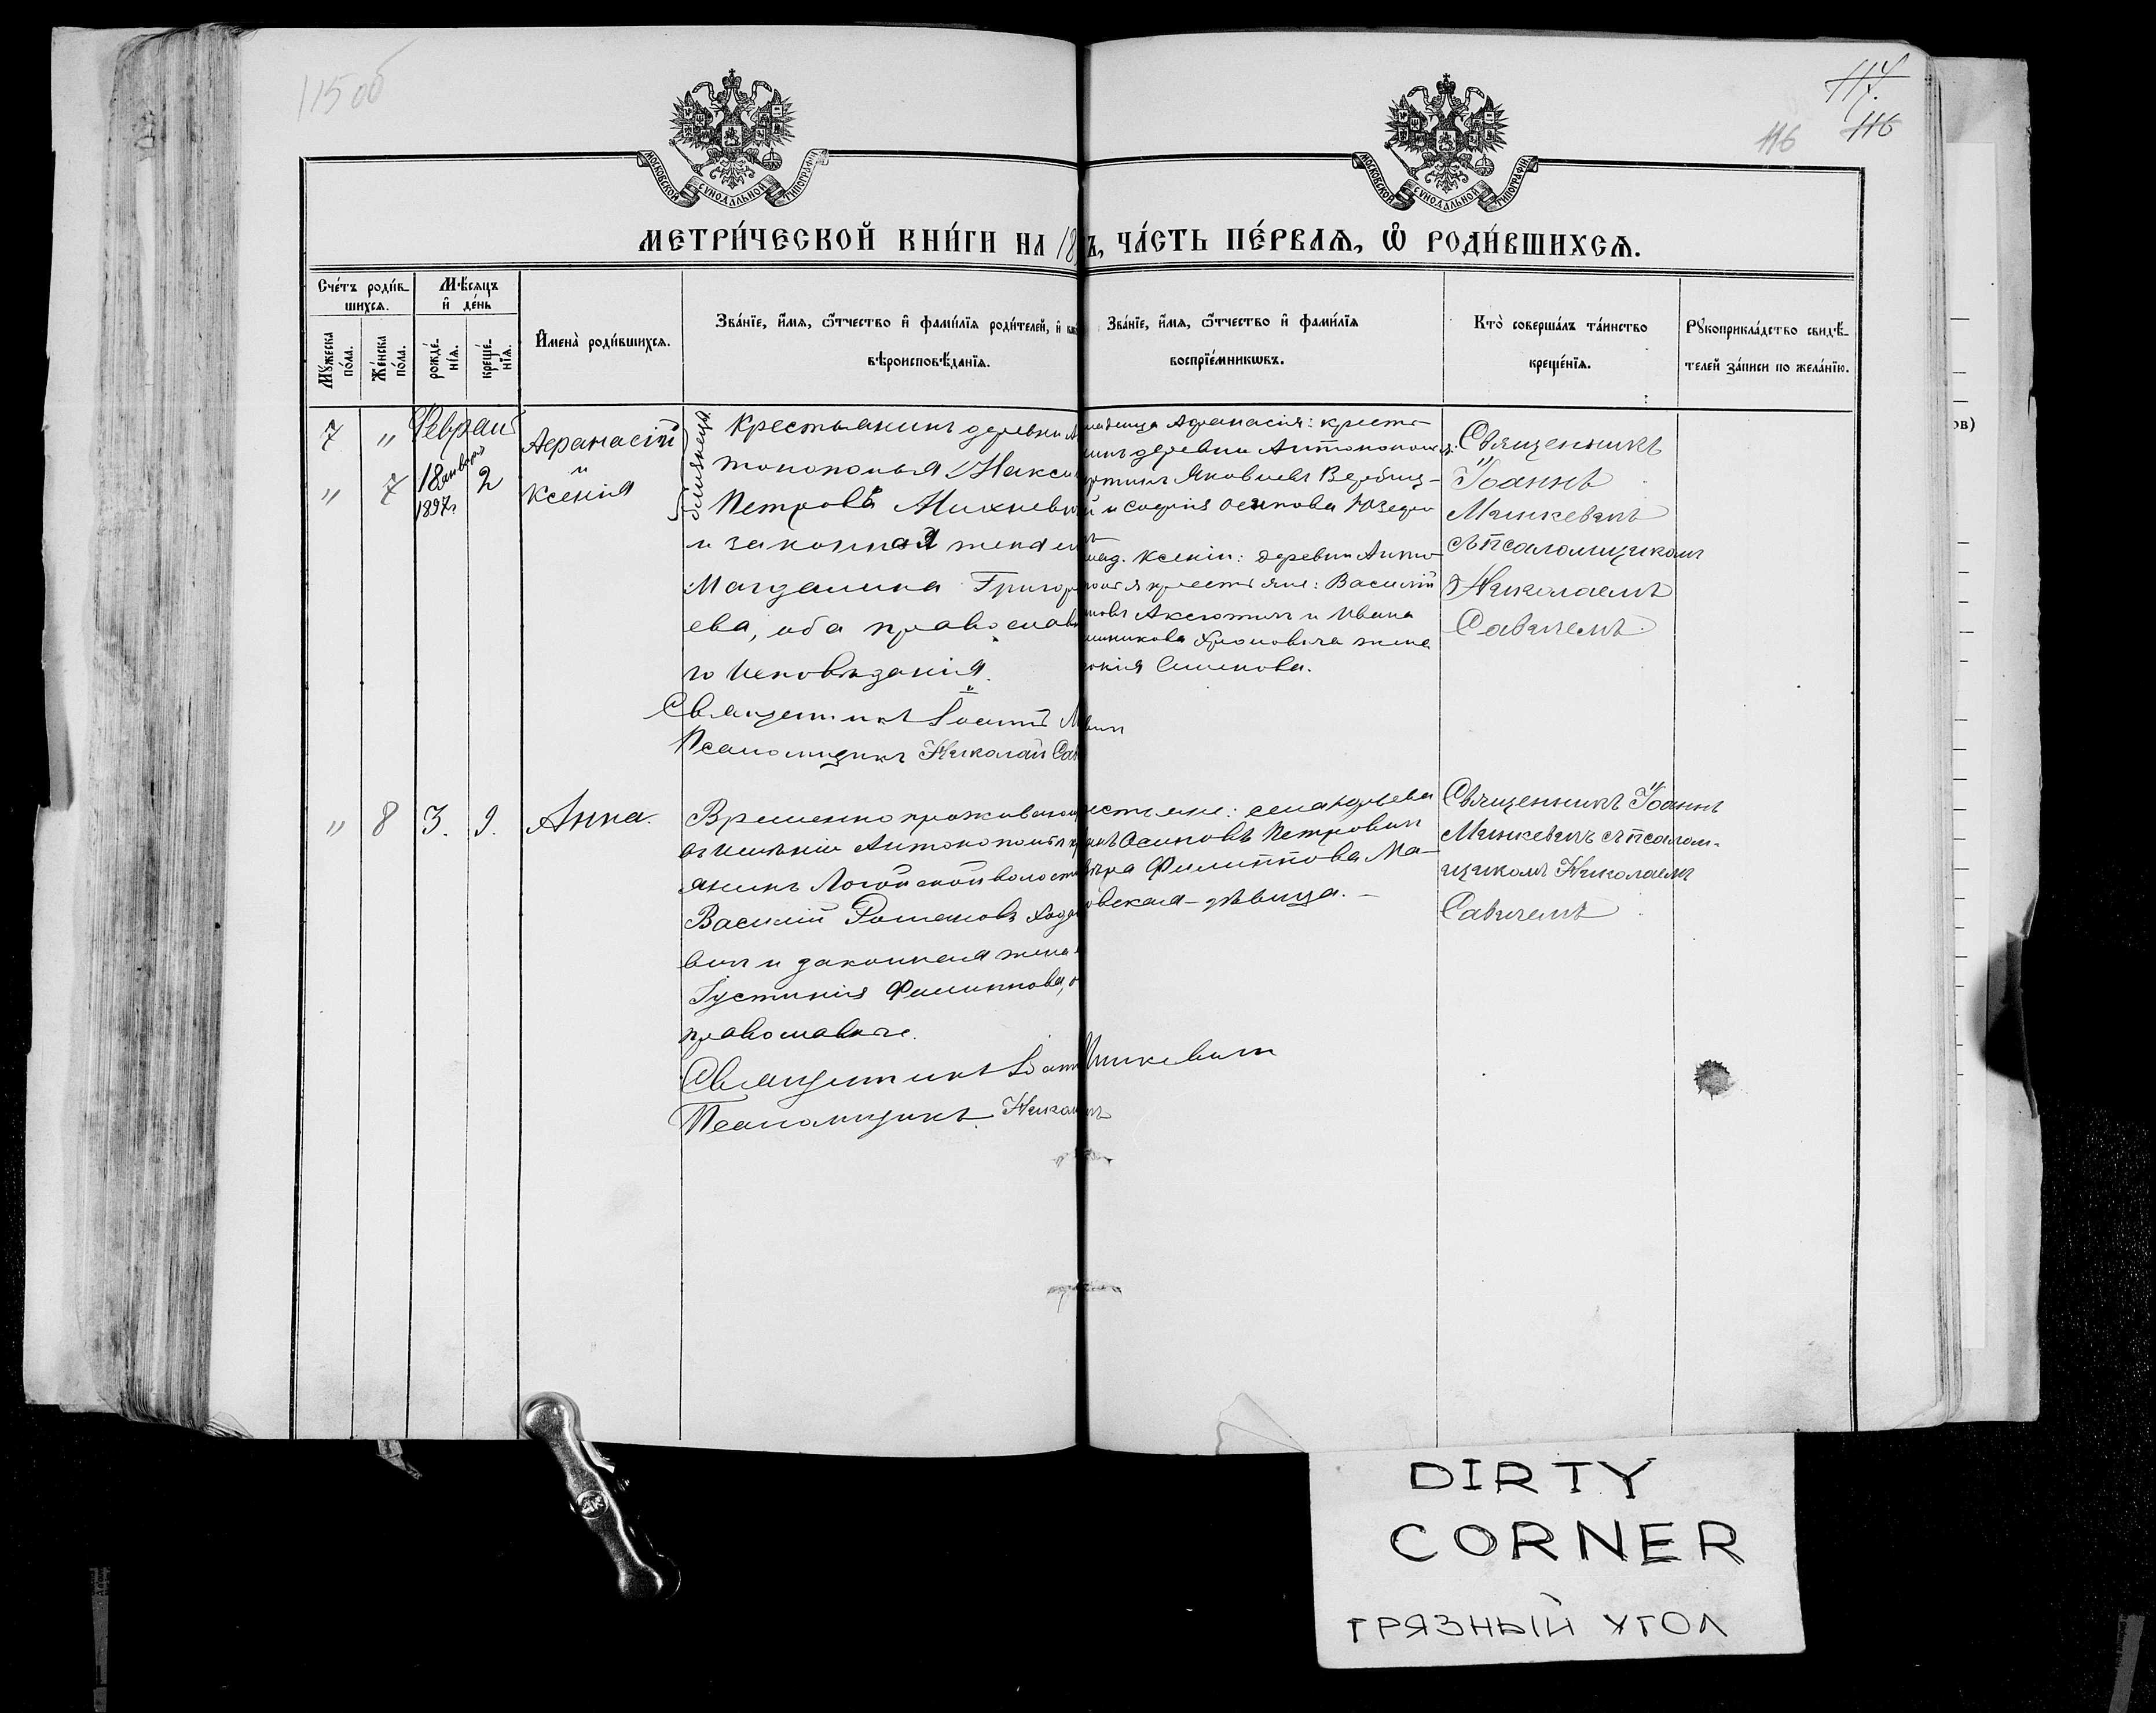 115 об
117.
116
116
МОСКОВСКОЙ СѴНОДАЛЬНОЙ ТИПОГРАФІИ
МОСКОВСКОЙ СѴНОДАЛЬНОЙ ТИПОГРАФІИ
МЕТРИ́ЧЕСКОЙ КНИ́ГИ НА 18
Ъ, ЧА́СТЬ ПЕ́РВАѦ, Ѡ РОДИ́ВШИХСѦ.
Сче́тъ роди́в
шихсѧ.
Мѣ́сѧцъ
и де́нь
Мꙋжеска по́ла.
Же́нска по́ла.
рожде́нїѧ.
креще́нїѧ.
Имена̀ роди́вшихсѧ.
Зва́нїе, и́мѧ, ѻ́тчество и фами́лїѧ роди́телей, и
вѣроисповѣ́данїѧ.
Зва́нїе, и́мѧ, ѻ́тчество и фами́лїѧ
воспрїе́мникѡвъ.
Кто̀ соверша́лъ та́инство
креще́нїѧ.
Рꙋкоприкла́дство свидѣ́-
телей за́писи по жела́нїю.
7 " Феврал
" 7 18 января 1897г. 2
Афанасій
и
Ксенія
близнецы
Крестьянинъ деревни А
тонополья Макси
Петровъ Михневи
и законная жена е
Магдалина Григорь
ева, оба православ
го исповѣданія.
Священникъ Іоаннъ М
Псаломщикъ Николай Сав
младенца Афанасія: кресть-
деревни Антонополья
Яковлевъ Вербиц-
й и Софія Осипова Юзефо
млад. Ксеніи: деревни Анто-
крестьяне: Василій
Аксютичъ и Ивана
жена
Семенова.
Священникъ
Іоаннъ
Минкевичъ
съ псаломщикомъ
Николаемъ
Савичемъ.
" 8 3. 9. Анна.
Временно проживающ
въ имѣніи Антонополь к
янинъ Логойской волости
Василій Романовъ Хода
вичъ и законная жена
Іустинія Филиппова, о
православные.
Священникъ Іоаннъ Минкевичъ
Псаломщикъ Никола
Осиповъ Петровичъ
Филиппова Ма-
овская - дѣвица. -
Священникъ Іоаннъ
Минкевичъ съ псалом-
щикомъ Николаемъ
Савичемъ
ов)
DIRTY
CORNER
ГРЯЗНЫЙ УГОЛ